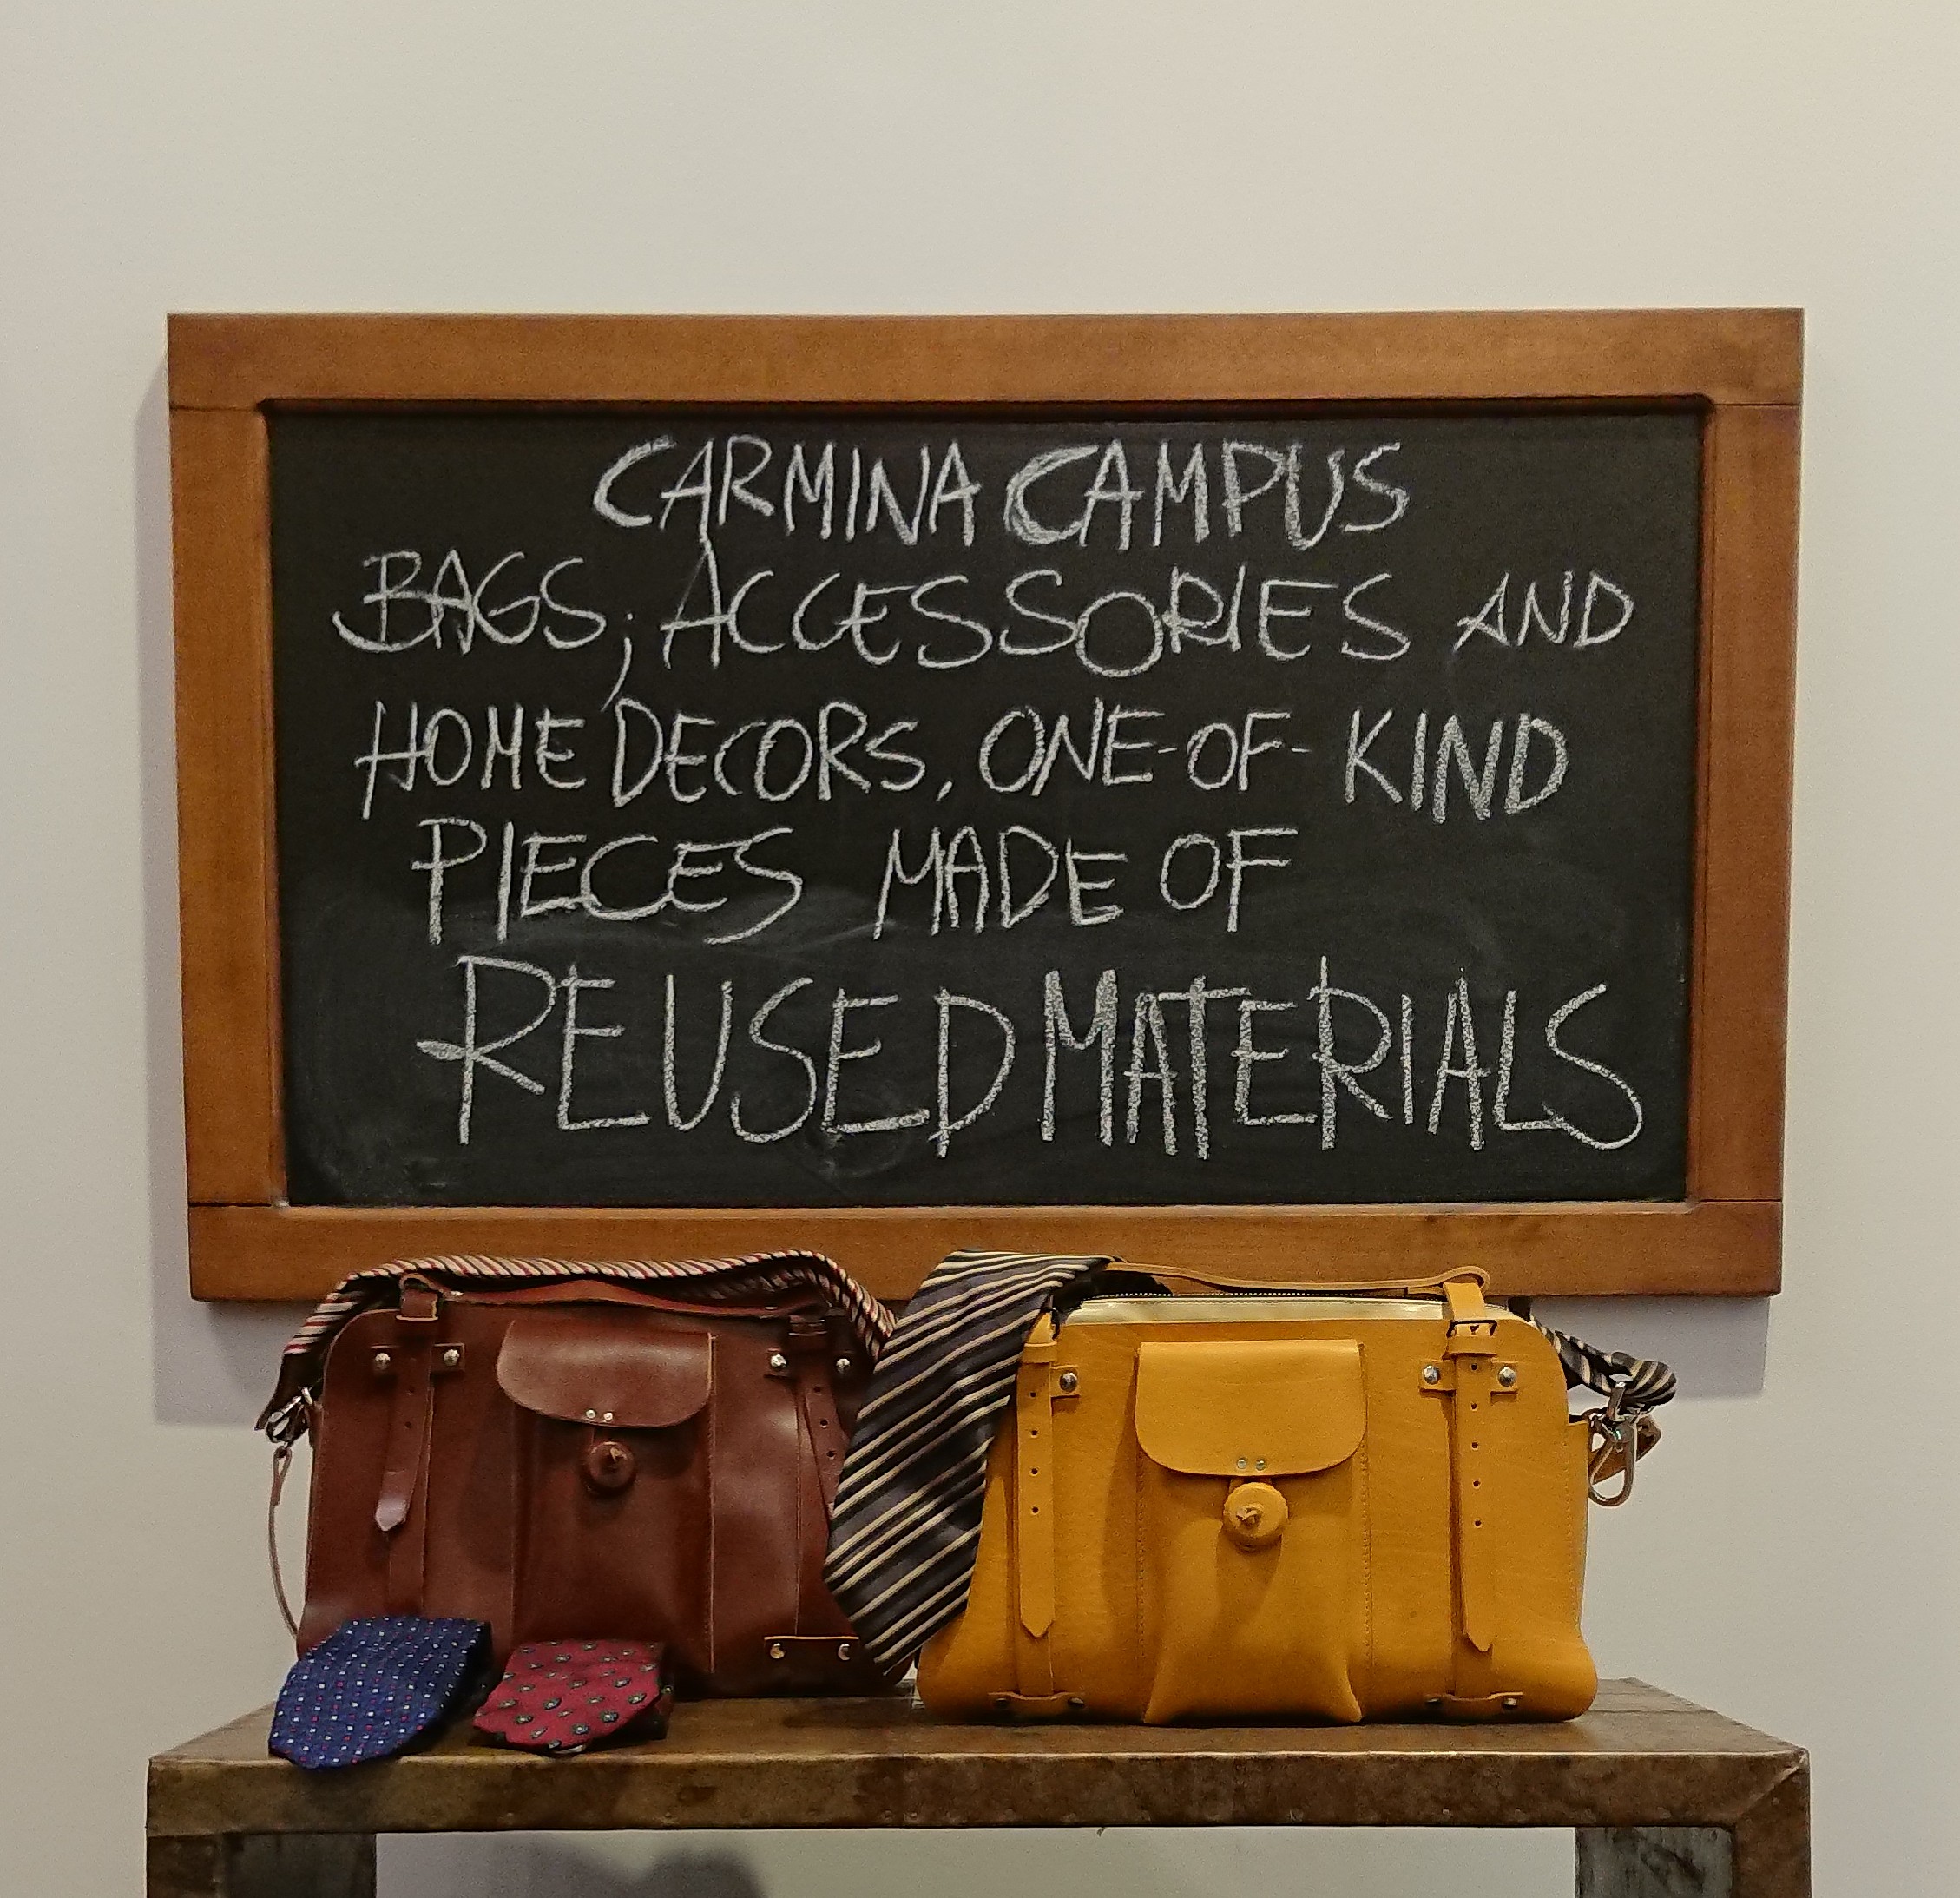 CARMINA CAMPUS
BAGS, ACCESSORIES AND
HOME DECORS, ONE-OF-KIND
PIECES MADE OF
REUSED MATERIALS